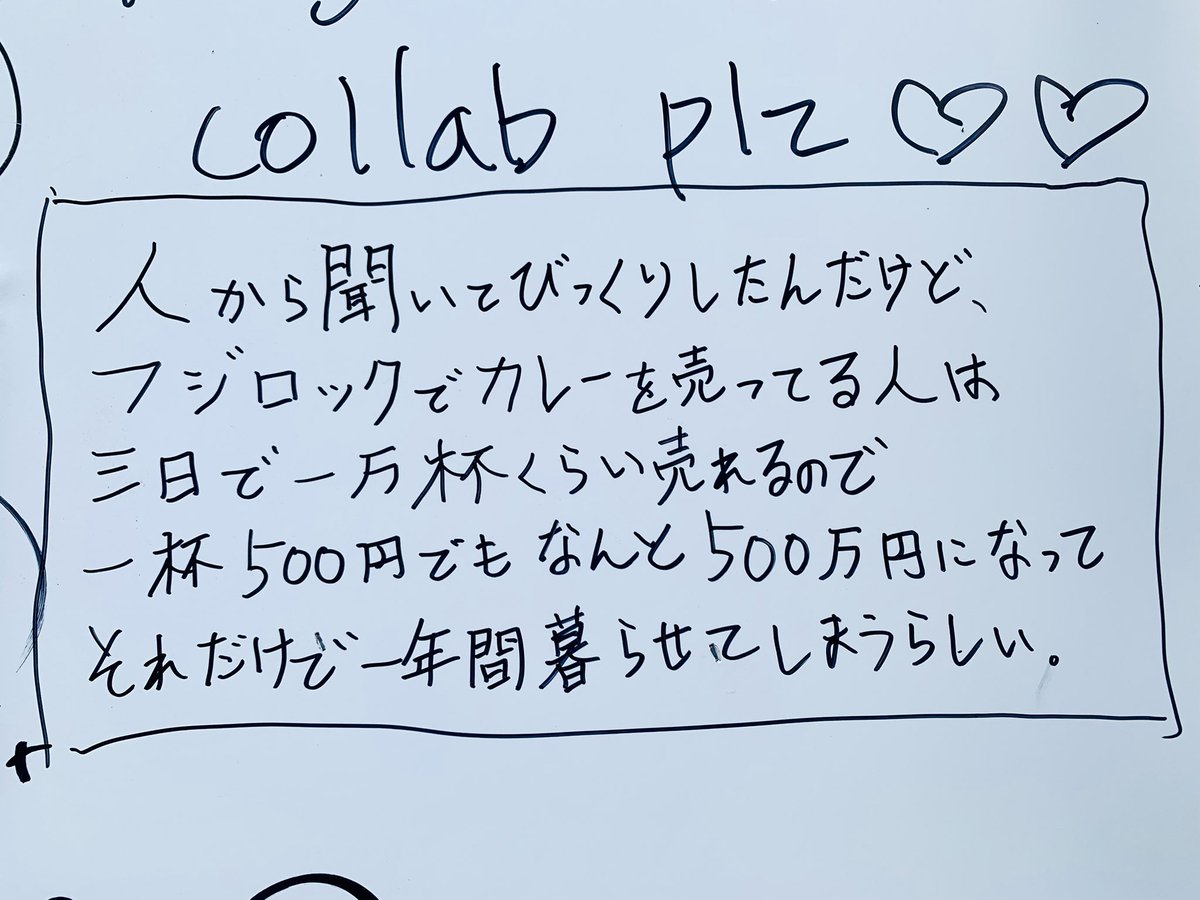 collab plz ♡♡
人から聞いてびっくりしたんだけど、
フジロックでカレーを売ってる人は
三日で一万杯くらい売れるので
一杯500円でもなんと500万円になって
それだけで一年間暮らせてしまうらしい。